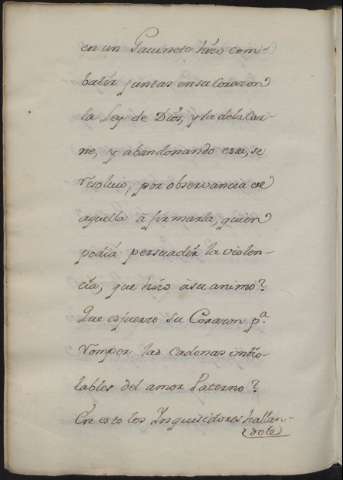 en un Gavineto hizo com-
batir juntas en su Corazon
la Ley de Dios, y la de la Car-
ne, y abandonando esta, se
resolvio, por observancia de
aquella â firmarla, quien
podia persuadir la violen-
cia, que hizo âsu animo?
Que esfuerzo su Corazon pª.
romper las cadenas invio-
lables del amor Paterno?
En esto los Ynquisidores hallan-
dolo